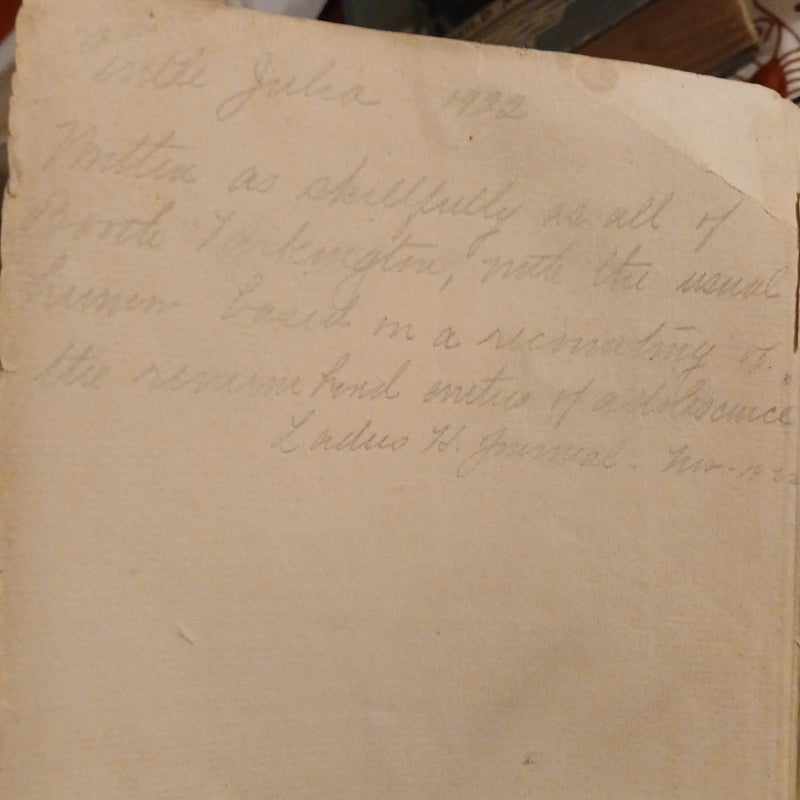 Gentle Julia 1922
Written as skillfully as all of
Booth Tarkington, with the usual
humor based on a recounting of
the of adolescence
H. Nov.